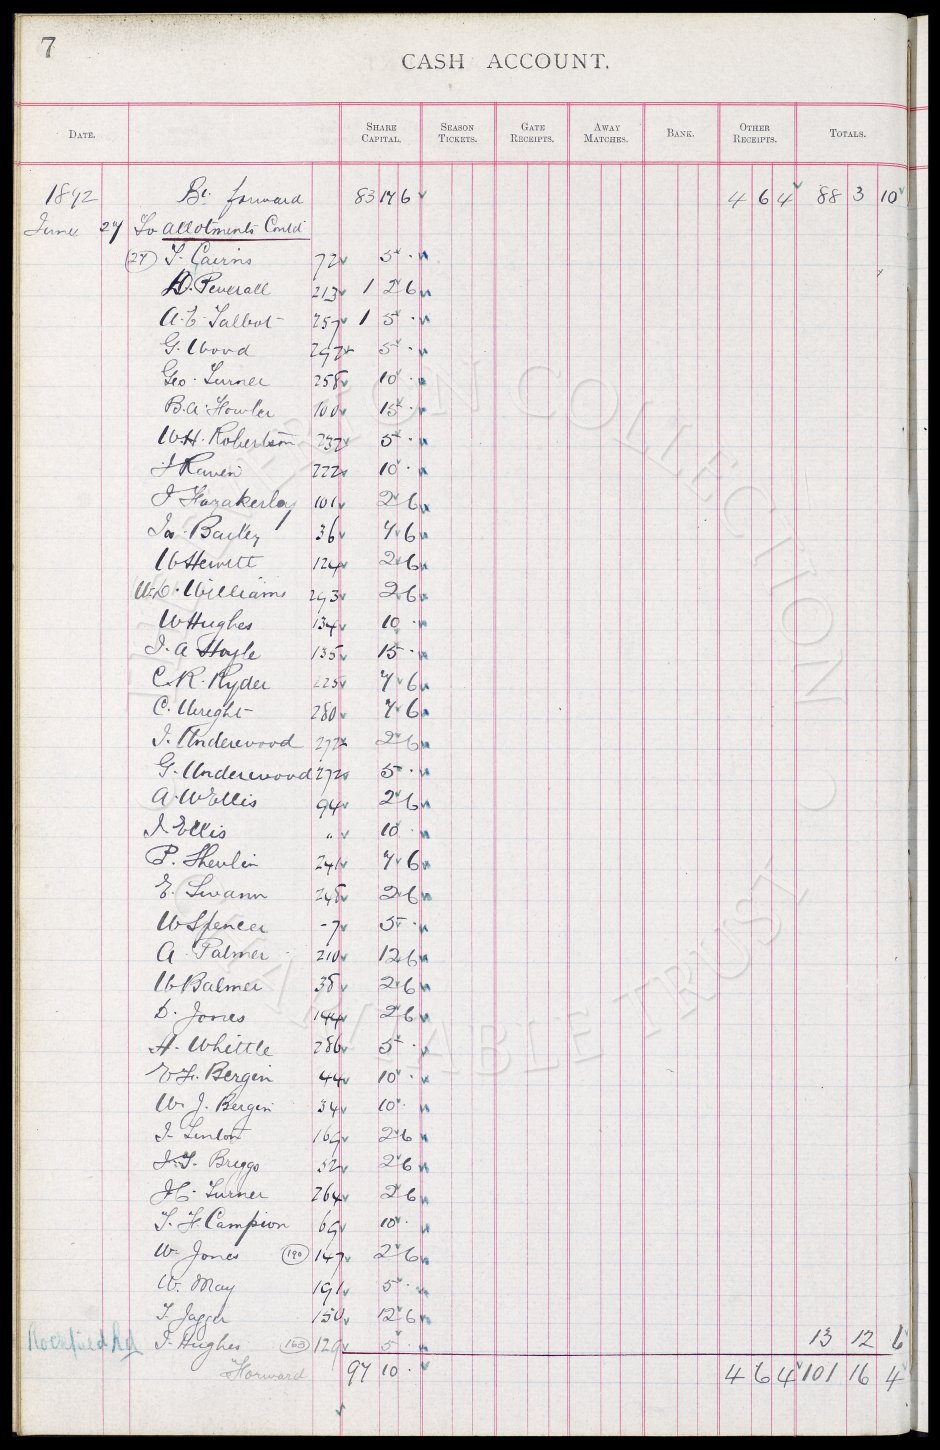 7
CASH ACCOUNT.
DATE. SHARE CAPITAL. SEASON TICKETS. GATE RECEIPTS. AWAY MATCHES. BANK. OTHER RECEIPTS. TOTALS.
1892 Bt. forward 83 17 6 4 6 4 88 3 10
June 27 To allotments Contd
(27) T. Cairns 72 5 .
D. Peverall 213 1 2 6
A. E. Talbot 257 1 5 .
G. Wood 297 5 .
Geo. Turner 258 10 .
B. A. Fowler 100 15 .
W. H. Robertson 232 5 .
J Raven 222 10 .
J Hazakerley 101 2 6
Jas. Bailey 36 7 6
W Hewitt 124 2 6
W. D. Williams 293 2 6
W Hughes 134 10 .
J. A Hoyle 135 15 .
C. R. Ryder 225 7 6
C. Wright 280 7 6
J. Underwood 272 2 6
G. Underwood 272 5 .
A. W Ellis 94 2 6
J. Ellis " 10
P. Shevlin 241 7 6
E. Swann 248 2 6
W Spencer -7 5 .
A. Palmer 210 12 6
W Balmer 38 2 6
D. Jones 144 2 6
H. Whittle 286 5 .
Bergin 44 10 .
W. J. Bergin 34 10 .
J. Linton 169 2 6
Briggs 52 2 6
Turner 264 2 6
T. H. Campion 69 10 .
W. Jones (190) 147 2 6
W. May 191 5 .
T. Jagger 150 12 6
Rockfield Rd J. Hughes (163) 129 5 . 13 12 6
Forward 97 10 . 4 6 4 101 16 4
COLLECTION
CHARITABLE TRUST